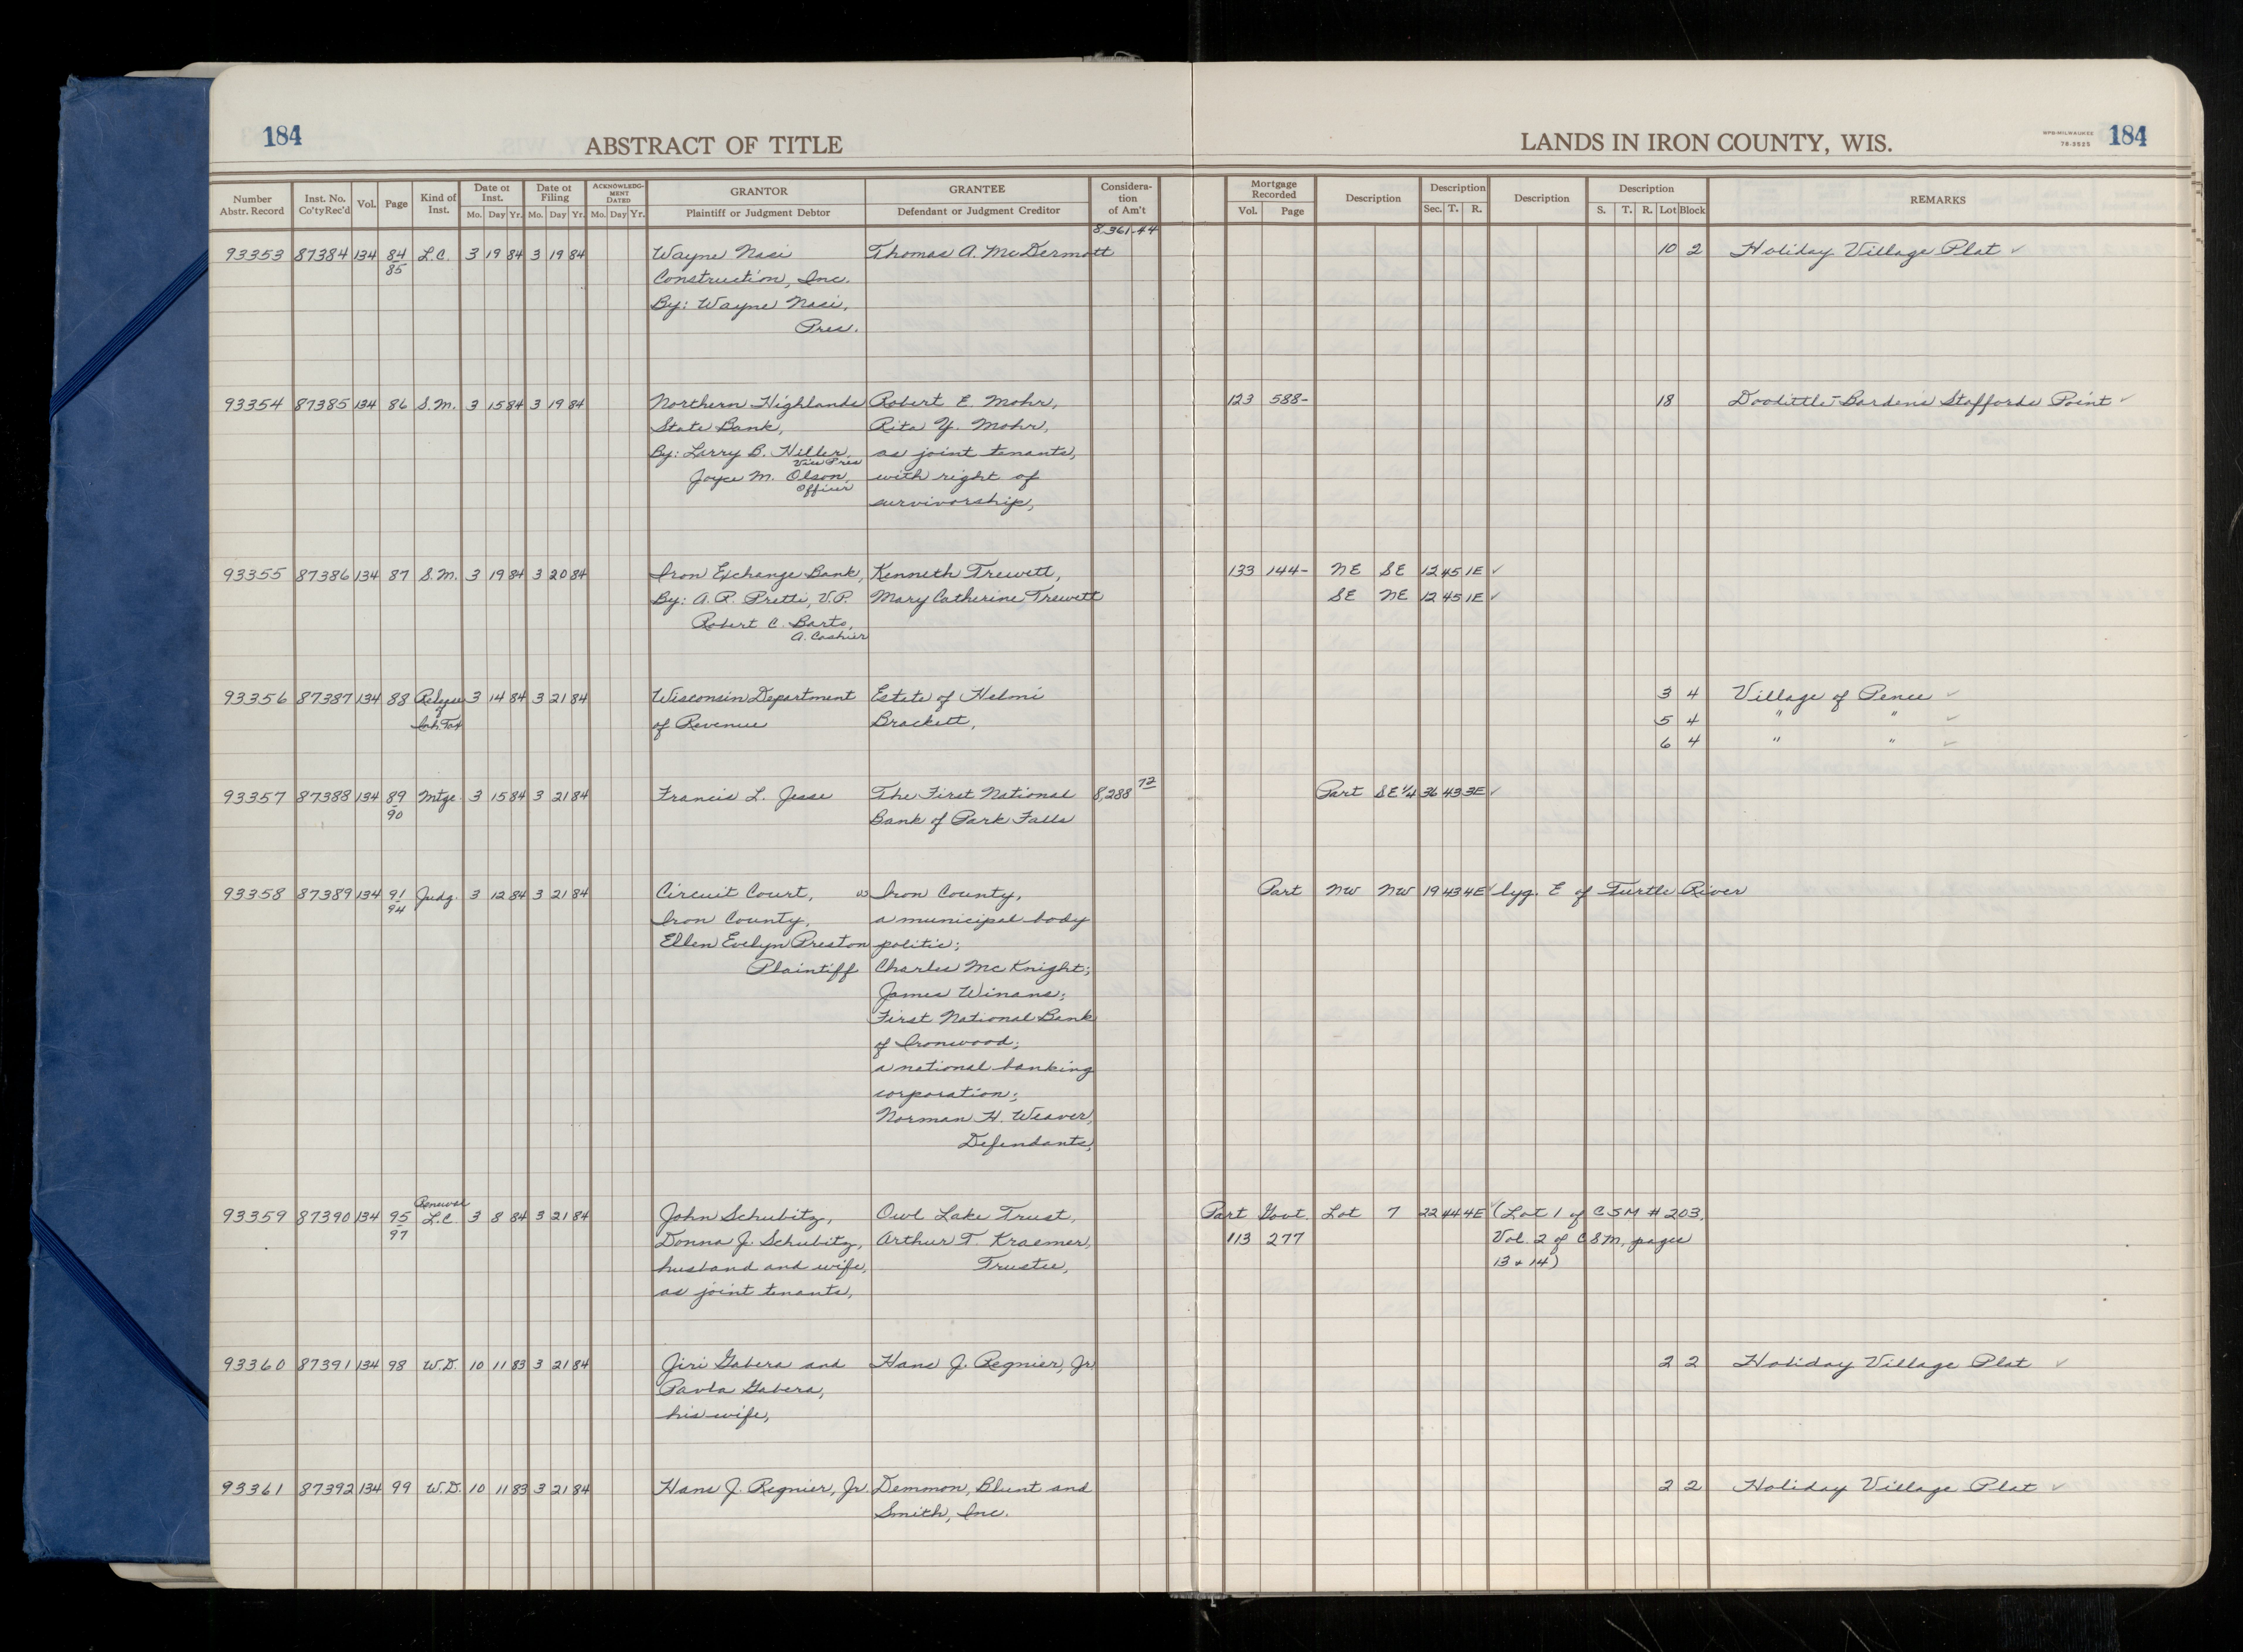 184
ABSTRACT OF TITLE
LANDS IN IRON COUNTY, WIS.
WPB-MILWAUKEE
78-3525
184
Number Abstr. Record
Inst. No. Co'ty Rec'd
Vol.
Page
Kind of Inst.
Date of Inst.
Mo. Day Yr.
Date of Filing
Mo. Day Yr.
ACKNOWLEDGMENT DATED
Mo. Day Yr.
GRANTOR
Plaintiff or Judgment Debtor
GRANTEE
Defendant or Judgment Creditor
Consideration of Am't
Mortgage Recorded
Vol. Page
Description
Description
Sec. T. R.
Description
Description
S. T. R. Lot Block
REMARKS
8,361.44
93353 87384 134 84 L.C. 3 19 84 3 19 84 Wayne Nasi Thomas A. McDermott 10 2 Holiday Village Plat ✓
85 Construction, Inc.
By: Wayne Nasi,
Pres.
93354 87385 134 86 S.M. 3 15 84 3 19 84 Northern Highlands Robert E. Mohr, 123 588- 18 Doolittle-Bardens Staffords Point ✓
State Bank, Rita Y. Mohr,
By: Larry B. Hiller, as joint tenants,
Vice Pres
Joyce M. Olson, with right of
Officer
survivorship,
93355 87386 134 87 S.M. 3 19 84 3 20 84 Iron Exchange Bank, Kenneth Trewett, 133 144- NE SE 12 45 1E ✓
By: A.P. Pretti, V.P. Mary Catherine Trewett SE NE 12 45 1E ✓
Robert C. Barto,
A. Cashier
93356 87387 134 88 Release 3 14 84 3 21 84 Wisconsin Department Estate of Helmi 3 4 Village of Pence ✓
of
Inh. Tax of Revenue Brackett, 5 4 " " ✓
6 4 " " ✓
93357 87388 134 89 Mtge 3 15 84 3 21 84 Francis L. Jesse The First National 8,288 72 Part SE 1/4 36 43 3E ✓
90 Bank of Park Falls
93358 87389 134 91 Judg. 3 12 84 3 21 84 Circuit Court, vs Iron County, Part NW NW 19 43 4E ✓ lyg. E of Turtle River
94 Iron County, a municipal body
Ellen Evelyn Preston politic;
Plaintiff Charles McKnight;
James Winans;
First National Bank
of Ironwood;
a national banking
corporation;
Norman H. Weaver,
Defendants,
Renewal
93359 87390 134 95 L.C. 3 8 84 3 21 84 John Schubitz, Owl Lake Trust, Part Govt. Lot 7 22 44 4E ✓ (Lot 1 of CSM # 203,
97 Donna J. Schubitz, Arthur T. Kraemer, 113 277 Vol. 2 of CSM, pages
husband and wife, Trustee, 13 + 14)
as joint tenants,
93360 87391 134 98 W.D. 10 11 83 3 21 84 Jiri Gabera and Hans J. Regnier, Jr. 2 2 Holiday Village Plat ✓
Pavla Gabera,
his wife,
93361 87392 134 99 W.D. 10 11 83 3 21 84 Hans J. Regnier, Jr. Demmon, Blunt and 2 2 Holiday Village Plat ✓
Smith, Inc.